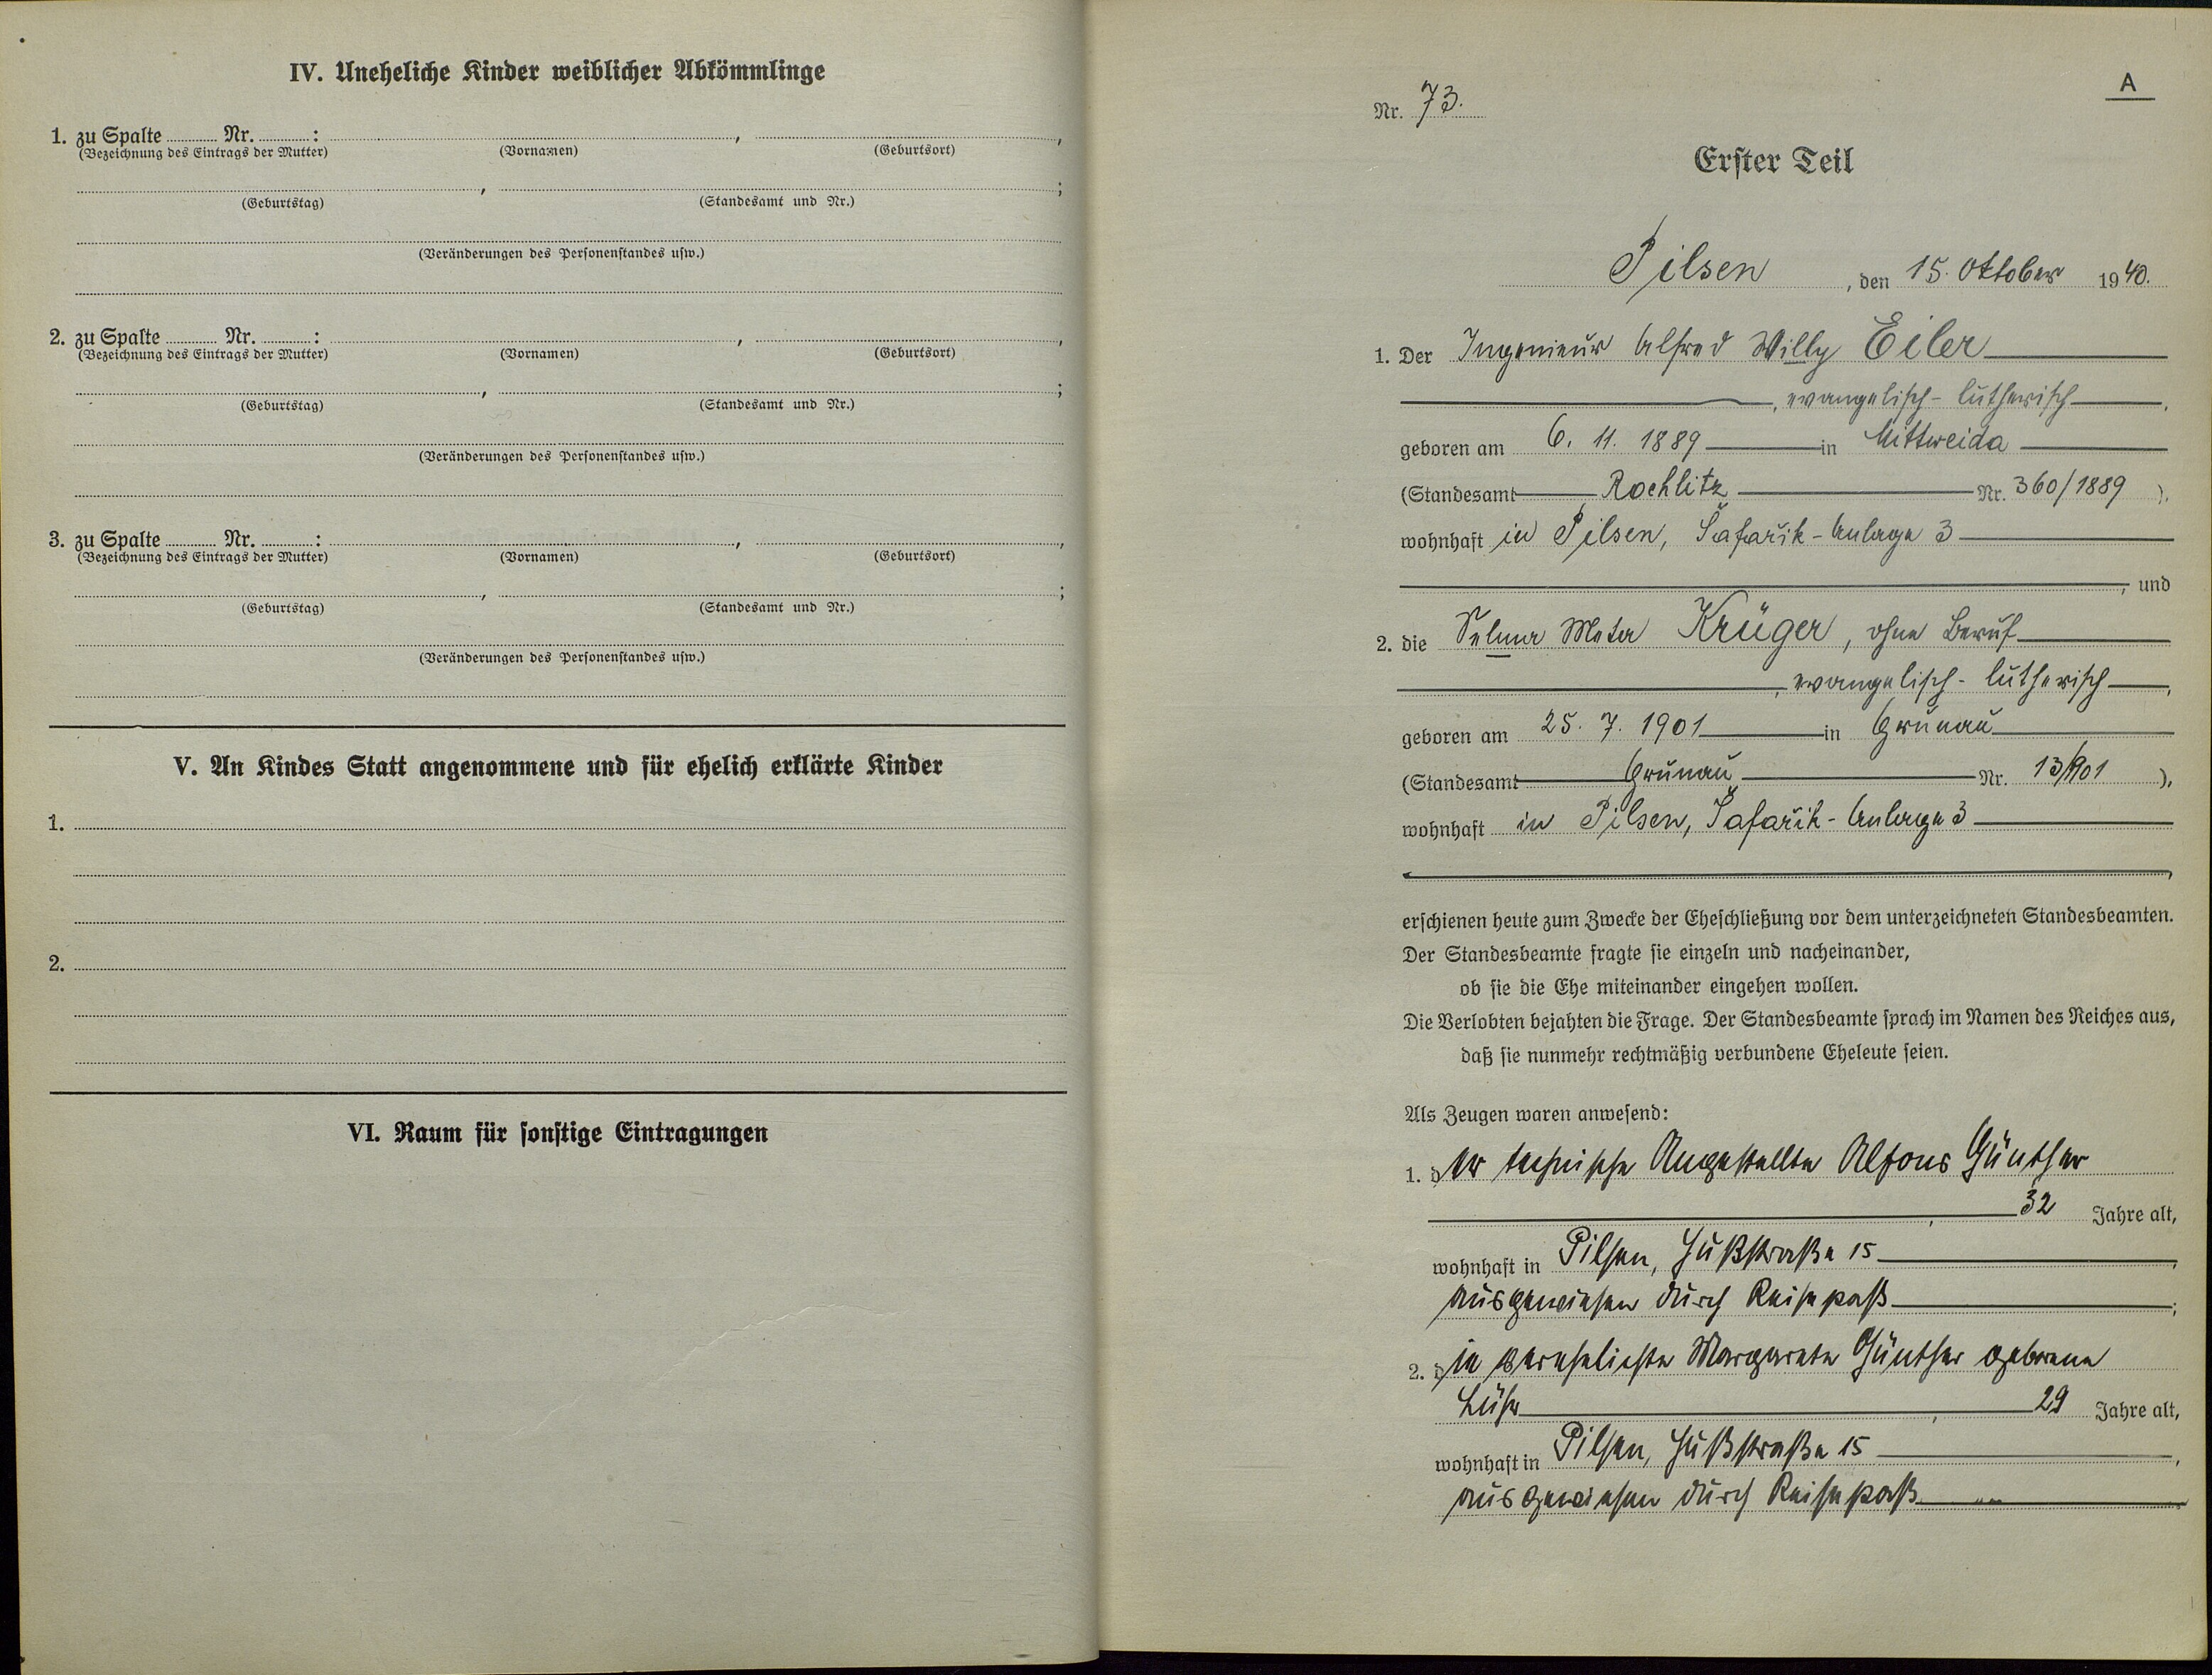 IV. Uneheliche Kinder weiblicher Abkömmlinge
1. zu Spalte ........ Nr. ........ :
(Bezeichnung des Eintrags der Mutter) (Vornamen) (Geburtsort)
(Geburtstag) (Standesamt und Nr.)
(Veränderungen des Personenstandes usw.)
2. zu Spalte ........ Nr. ........ :
(Bezeichnung des Eintrags der Mutter) (Vornamen) (Geburtsort)
(Geburtstag) (Standesamt und Nr.)
(Veränderungen des Personenstandes usw.)
3. zu Spalte ........ Nr. ........ :
(Bezeichnung des Eintrags der Mutter) (Vornamen) (Geburtsort)
(Geburtstag) (Standesamt und Nr.)
(Veränderungen des Personenstandes usw.)
V. An Kindes Statt angenommene und für ehelich erklärte Kinder
1.
2.
VI. Raum für sonstige Eintragungen
A
Nr. 73.
Erster Teil
Pilsen, den 15. Oktober 1940.
1. Der Ingenieur Alfred Willy Eiler
, evangelisch-lutherisch,
geboren am 6. 11. 1889 in Mittweida
(Standesamt Rochlitz Nr. 360/1889),
wohnhaft in Pilsen, Šafařik-Anlage 3
, und
2. die Selma Meta Krüger, ohne Beruf
, evangelisch-lutherisch,
geboren am 25. 7. 1901 in Grünau
(Standesamt Grünau Nr. 13/1901),
wohnhaft in Pilsen, Šafařik-Anlage 3
,
erschienen heute zum Zwecke der Eheschließung vor dem unterzeichneten Standesbeamten.
Der Standesbeamte fragte sie einzeln und nacheinander,
ob sie die Ehe miteinander eingehen wollen.
Die Verlobten bejahten die Frage. Der Standesbeamte sprach im Namen des Reiches aus,
daß sie nunmehr rechtmäßig verbundene Eheleute seien.
Als Zeugen waren anwesend:
1. der technische Angestellte Alfons Günther
, 32 Jahre alt,
wohnhaft in Pilsen, Hußstraße 15,
ausgewiesen durch Reisepaß;
2. die verehelichte Margarete Günther geborene
Lühr, 29 Jahre alt,
wohnhaft in Pilsen, Hußstraße 15,
ausgewiesen durch Reisepaß